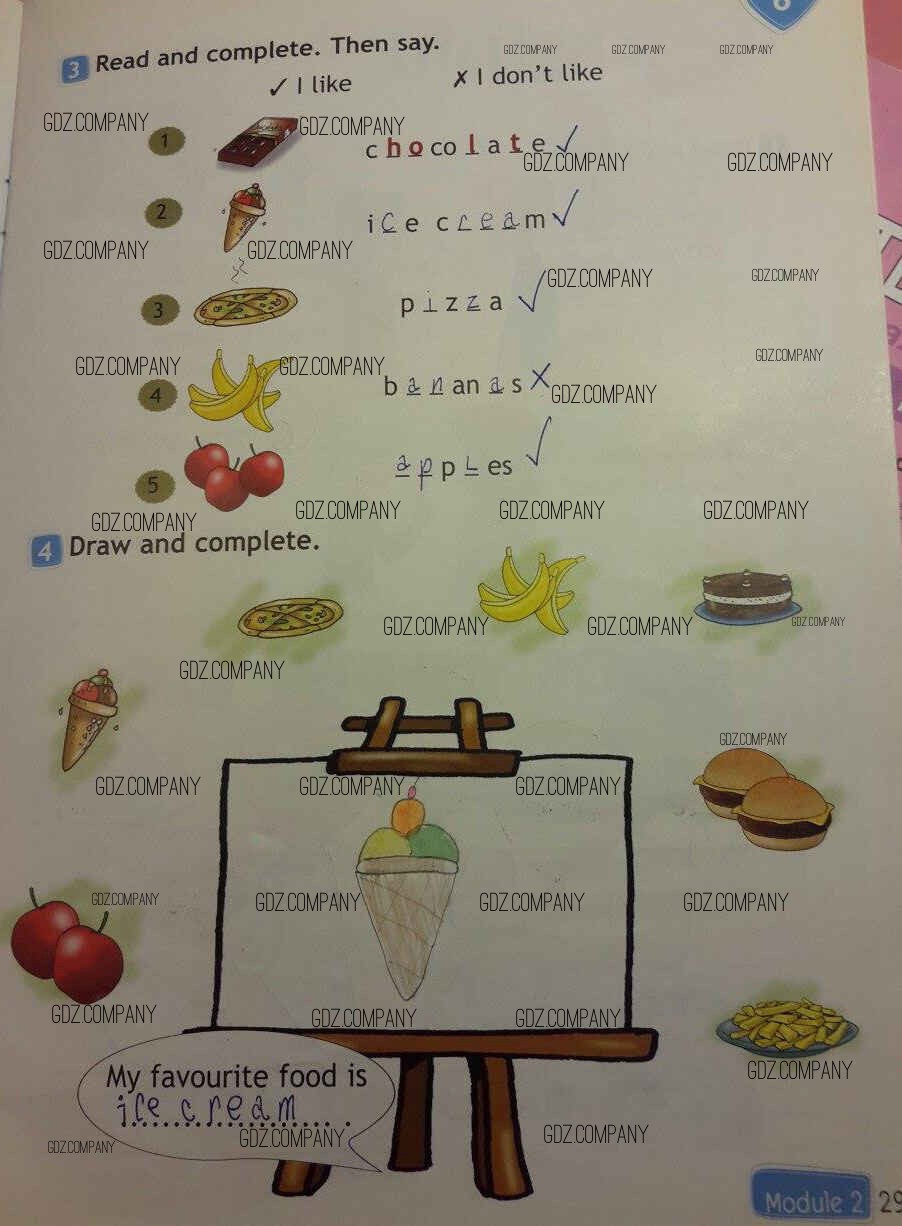 6
3 Read and complete. Then say.
GDZ.COMPANY GDZ.COMPANY GDZ.COMPANY
✓ I like ✗ I don't like
GDZ.COMPANY GDZ.COMPANY
1 chocolate ✓
GDZ.COMPANY GDZ.COMPANY
2 ice cream ✓
GDZ.COMPANY GDZ.COMPANY
GDZ.COMPANY GDZ.COMPANY
3 pizza ✓
GDZ.COMPANY GDZ.COMPANY GDZ.COMPANY
4 bananas ✗
GDZ.COMPANY
5 apples ✓
GDZ.COMPANY GDZ.COMPANY GDZ.COMPANY GDZ.COMPANY
4 Draw and complete.
GDZ.COMPANY GDZ.COMPANY GDZ.COMPANY
GDZ.COMPANY
GDZ.COMPANY
GDZ.COMPANY GDZ.COMPANY GDZ.COMPANY
GDZ.COMPANY GDZ.COMPANY GDZ.COMPANY GDZ.COMPANY
GDZ.COMPANY GDZ.COMPANY GDZ.COMPANY
GDZ.COMPANY
My favourite food is
ice cream.
GDZ.COMPANY GDZ.COMPANY GDZ.COMPANY
Module 2 29